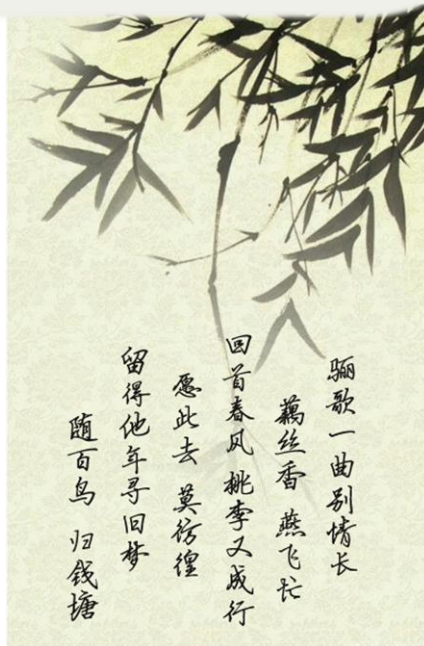 骊歌一曲别情长
藕丝香 燕飞忙
回首春风 桃李又成行
愿此去 莫彷徨
留得他年寻旧梦
随百鸟 归钱塘